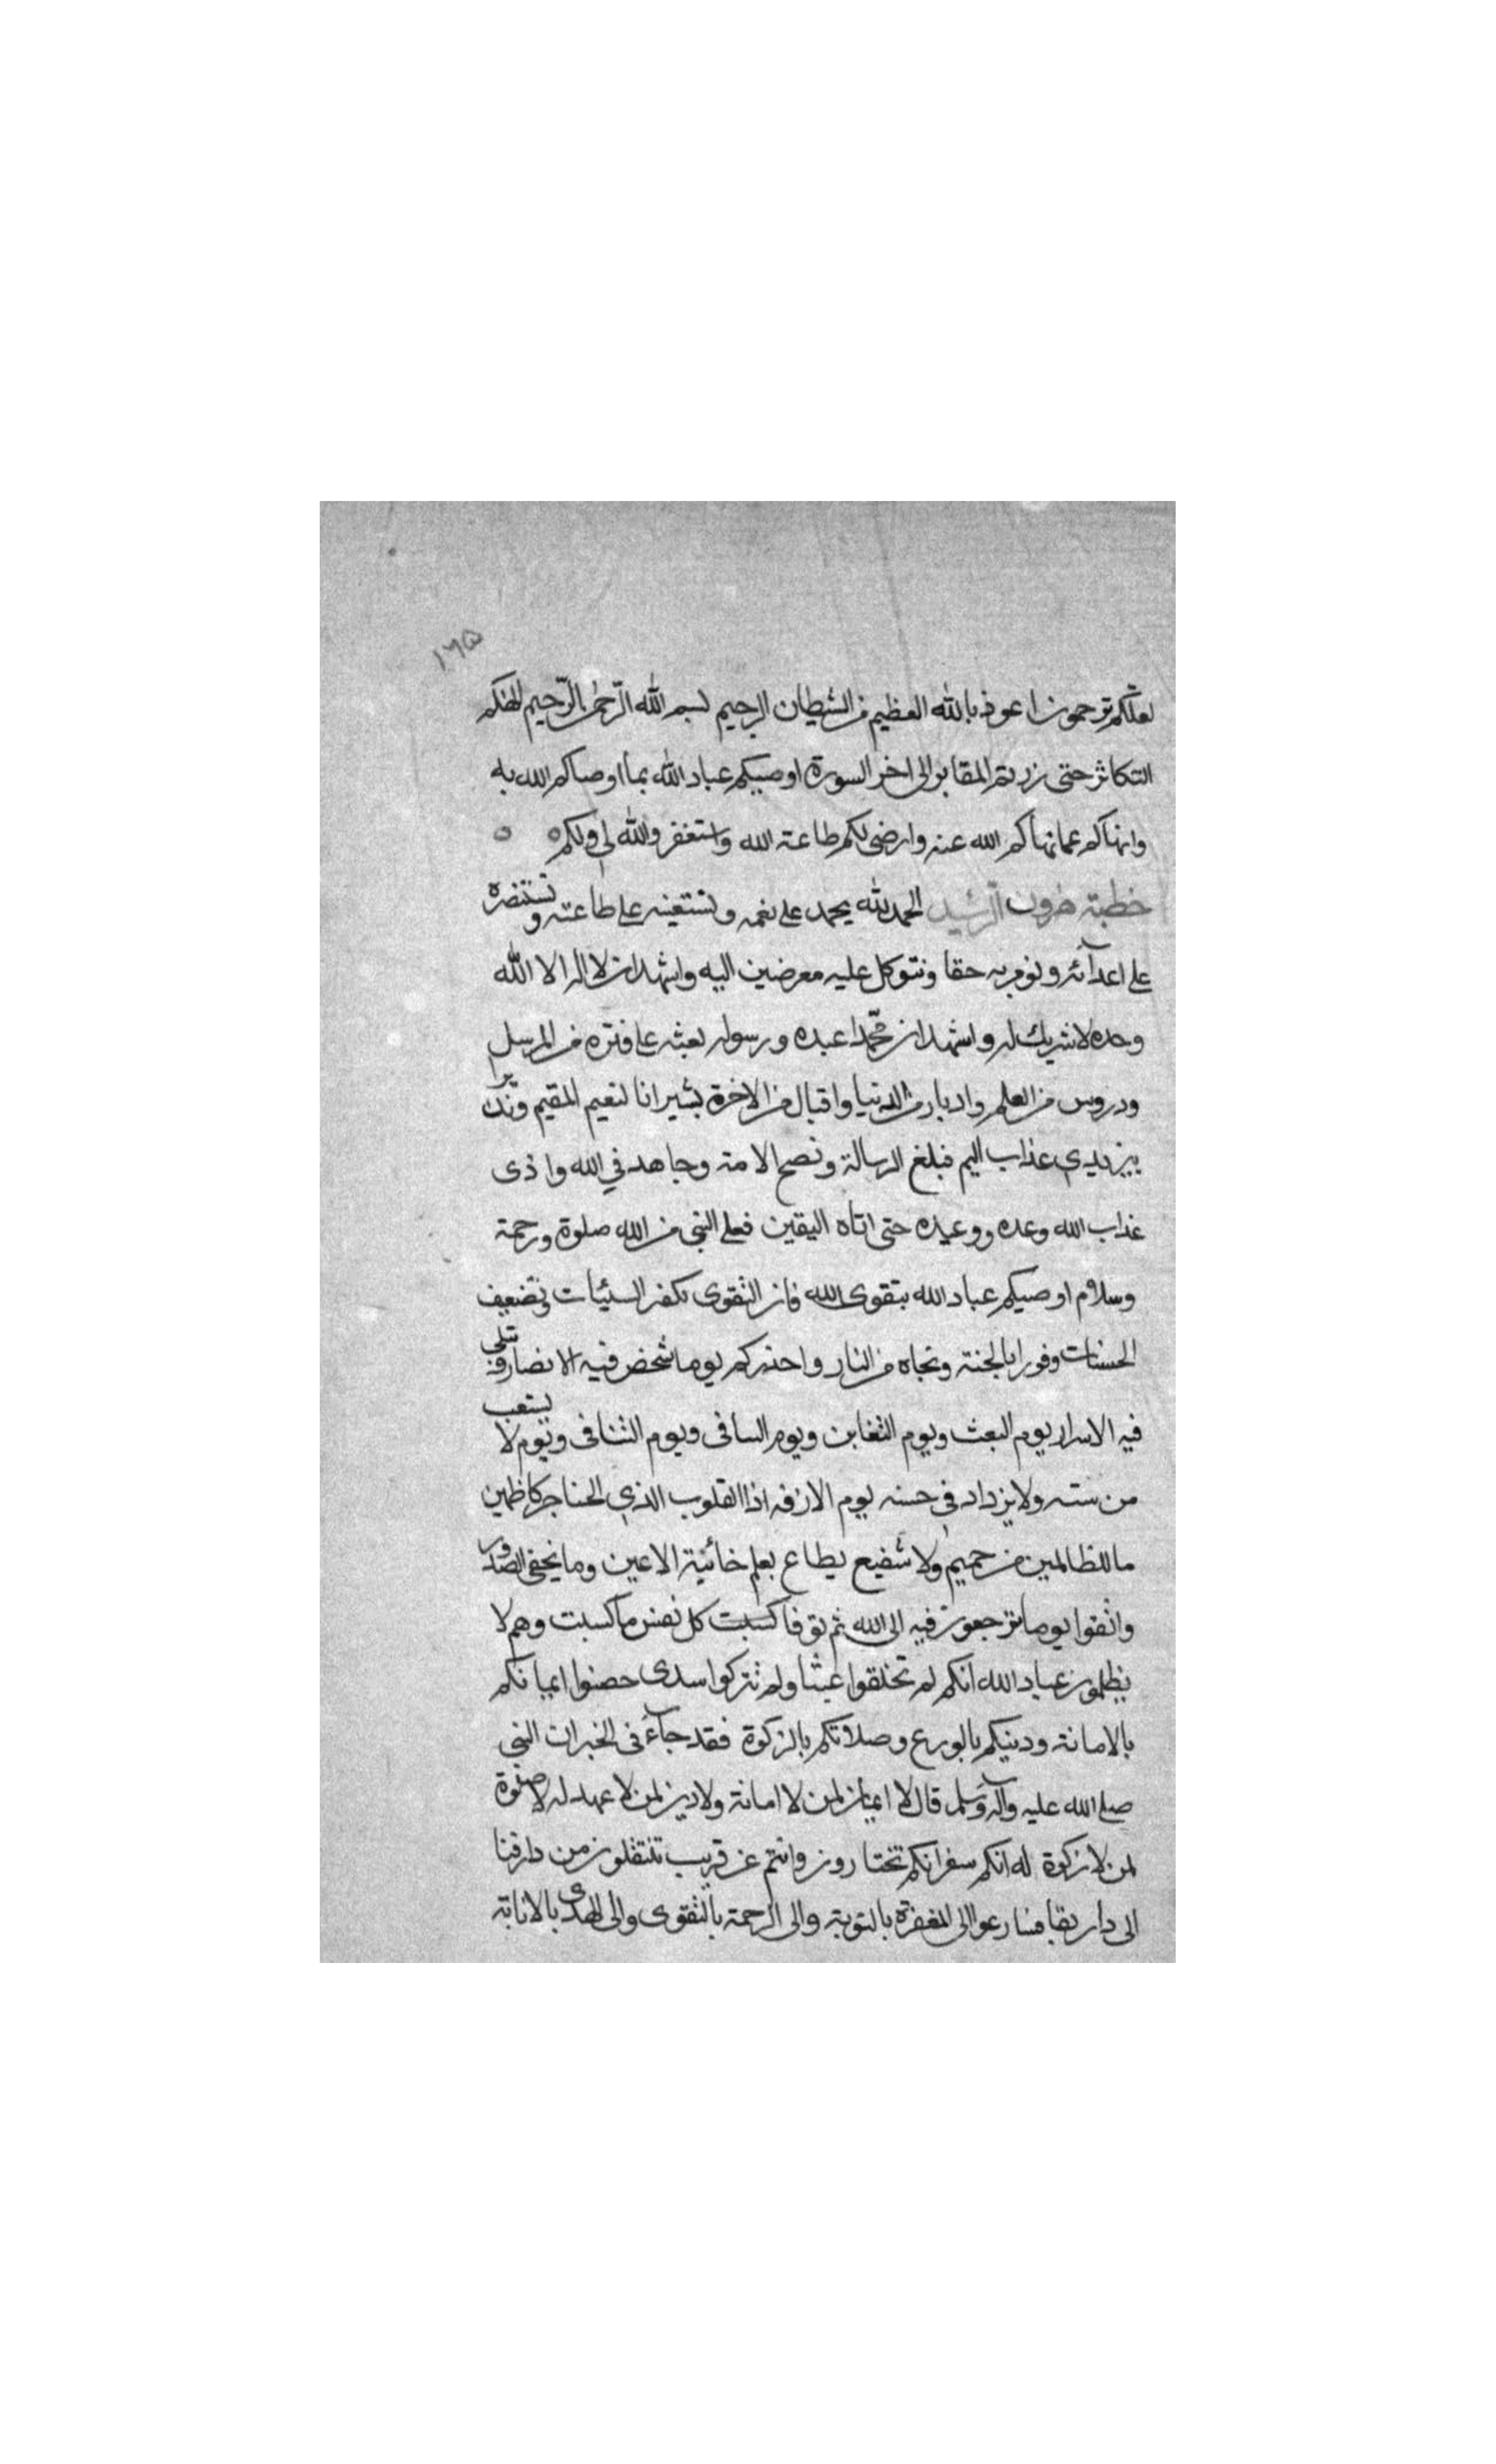 ١٦٥
لعلكم ترحمون اعوذ بالله العظيم من الشيطان الرجيم بسم الله الرحمن الرحيم الهكم
التكاثر حتى زرتم المقابر الى اخر السورة اوصيكم عباد الله بما اوصاكم الله به
وانهاكم عما نهاكم الله عنه وارضى لكم طاعة الله واستغفروا لله لي ولكم
خطبة هرون الرشيد الحمد لله يحمد على نعمه ونستعينه على طاعته ونستنصره
على اعدآئه ونؤمن به حقا ونتوكل عليه معرضين اليه واشهد ان لا اله الا الله
وحده لا شريك له واشهد ان محمدا عبده ورسوله بعثه على فتره من المرسل
ودروس من العلم وادبار من الدنيا واقبال من الاخرة بشيرانا لنعيم المقيم ونذيرا
بين يدي عذاب اليم فبلغ الرسالة ونصح الامة وجاهد في الله واذى
عذاب الله وعده ووعيده حتى اتاه اليقين فعلى النبي من الله صلوة ورحمة
وسلام اوصيكم عباد الله بتقوى الله فان التقوى تكفر السيئات تضعيف
الحسنات وفورا بالجنة ونجاه من النار واحذركم يوما شخص فيه الانصار وتبلى
فيه الاسرار يوم البعث ويوم التغابن ويوم السافى ويوم الثنافى ويوم لا يستعب
من سته ولا يزداد في حسنه يوم الازفه اذا القلوب الذي الحناجر كاظمين
ما للظالمين من حميم ولا شفيع يطاع يعلم خائنة الاعين وما يخفى الصدور
واتقوا يوما ترجعون فيه الى الله ثم توفا كسبت كل نفس ما كسبت وهم لا
يظلمون عباد الله انكم لم تخلقوا عبثا ولم تتركوا سدى حصنوا ايمانكم
بالامانة ودينكم بالورع وصلاتكم بالزكوة فقد جآء في الخبر ان النبي
صلى الله عليه وآله وسلم قال لا ايمان لمن لا امانة ولا دين لمن لا عهد له لا صلوة
لمن لا زكوة له انكم سفر انكم تختارون وانتم عن قريب تنتقلون من دار فنا
الى دار بقا فسارعوا الى المغفرة بالتوبة والى الرحمة بالتقوى والى الهدى بالانابة